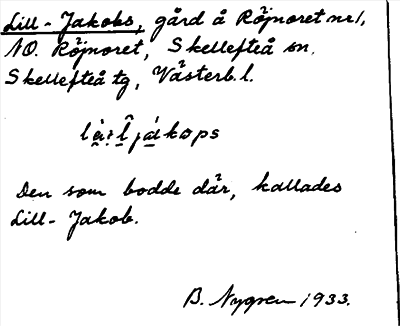 Lill-Jakobs, gård å Röjnoret nr 1,
NO. Röjnoret, Skellefteå sn.
Skellefteå tg, Västerb. l.
jákops
Den som bodde där, kallades
Lill-Jakob.
B. Nygren 1933.